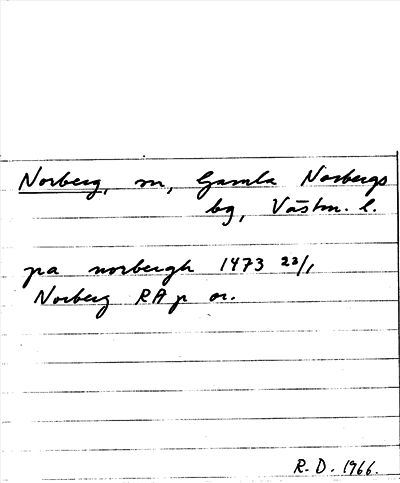 Norberg, sn, Gamla Norbergs
bg, Västm. l.
pa norbergh 1473 23/1
Norberg RA p or.
R. D. 1966.